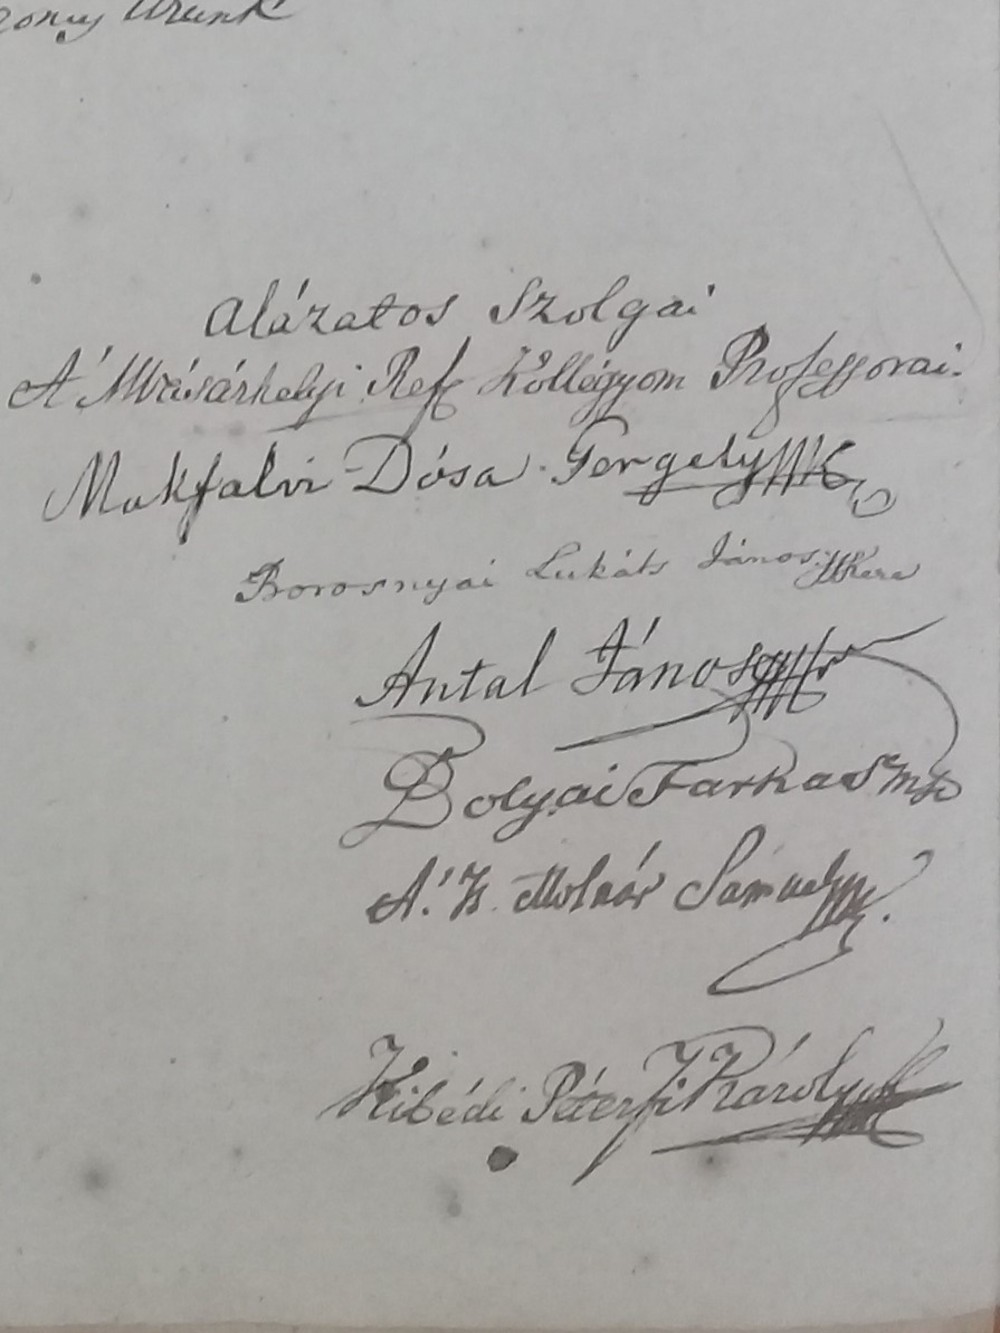 Urunk
Alázatos Szolgai
A' MVásárhelyi Ref Kollégyom Professorai.
Makfalvi Dósa Gergely
Borosnyai Lukáts János
Antal János
Bolyai Farkas mk
A. K. Molnár Sámuel
Kibédi Péterfi Károly